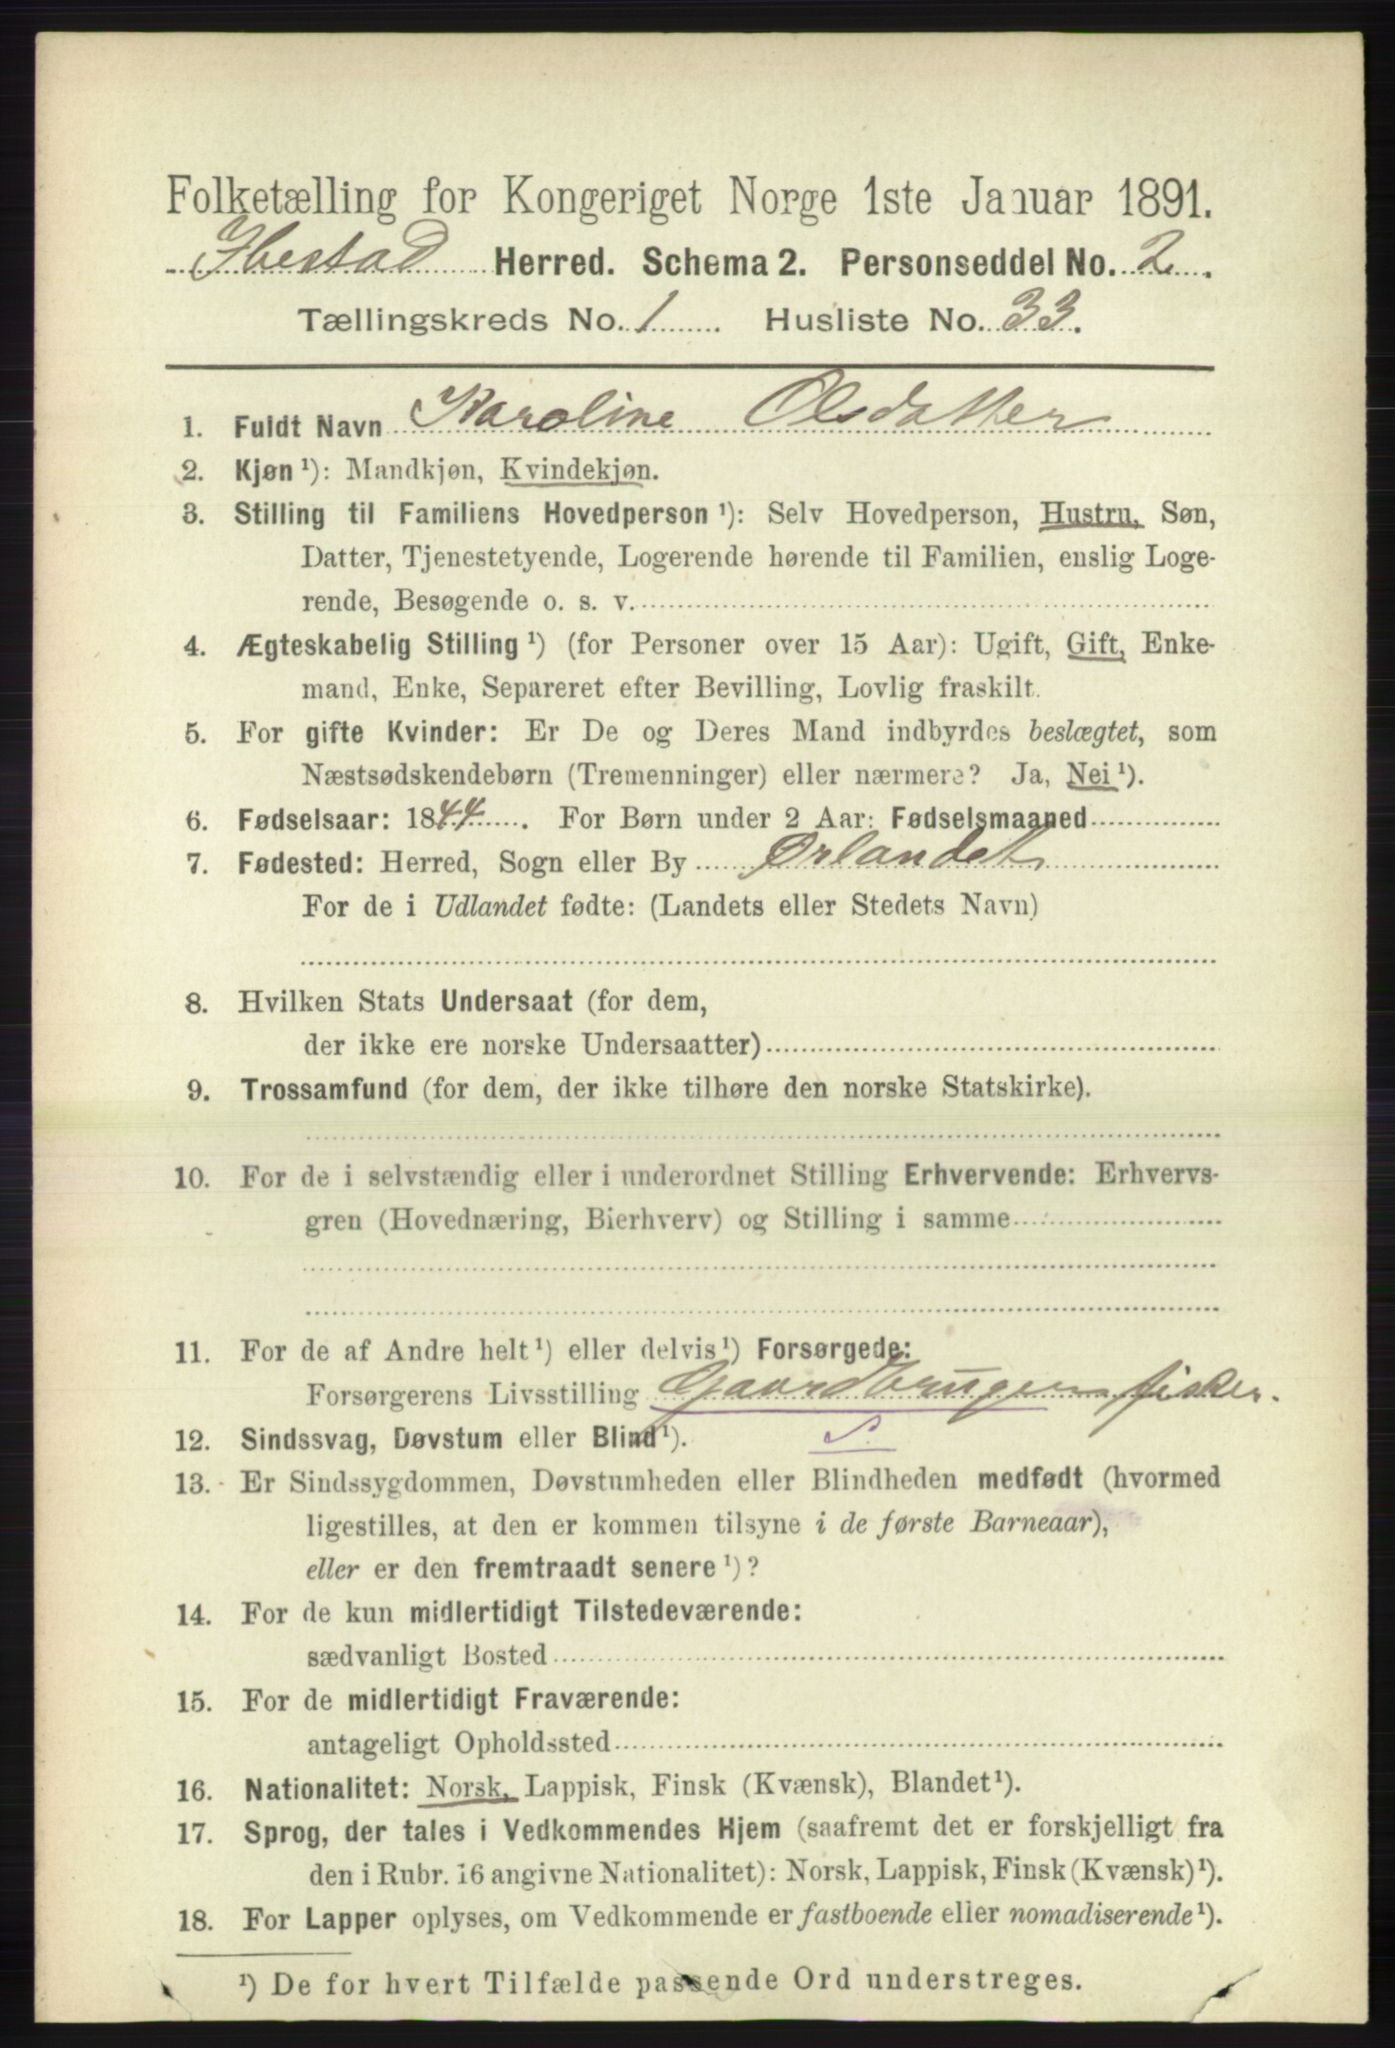 Folketælling for Kongeriget Norge 1ste Januar 1891.
Ibestad Herred. Schema 2. Personseddel No. 2.
Tællingskreds No. 1 Husliste No. 33.
1. Fuldt Navn Karoline Olsdatter
2. Kjøn ¹): Mandkjøn, Kvindekjøn.
3. Stilling til Familiens Hovedperson ¹): Selv Hovedperson, Hustru, Søn,
Datter, Tjenestetyende, Logerende hørende til Familien, enslig Loge-
rende, Besøgende o. s. v.
4. Ægteskabelig Stilling ¹) (for Personer over 15 Aar): Ugift, Gift, Enke-
mand, Enke, Separeret efter Bevilling, Lovlig fraskilt.
5. For gifte Kvinder: Er De og Deres Mand indbyrdes beslægtet, som
Næstsødskendebørn (Tremenninger) eller nærmere? Ja, Nei ¹).
6. Fødselsaar: 1844. For Børn under 2 Aar: Fødselsmaaned
7. Fødested: Herred, Sogn eller By Ørlandet
For de i Udlandet fødte: (Landets eller Stedets Navn)
8. Hvilken Stats Undersaat (for dem,
der ikke ere norske Undersaatter)
9. Trossamfund (for dem, der ikke tilhøre den norske Statskirke).
10. For de i selvstændig eller i underordnet Stilling Erhvervende: Erhvervs-
gren (Hovednæring, Bierhverv) og Stilling i samme
11. For de af Andre helt ¹) eller delvis ¹) Forsørgede:
Forsørgerens Livsstilling Gaardbruger fisker.
12. Sindssvag, Døvstum eller Blind ¹). S.
13. Er Sindssygdommen, Døvstumheden eller Blindheden medfødt (hvormed
ligestilles, at den er kommen tilsyne i de første Barneaar),
eller er den fremtraadt senere ¹)?
14. For de kun midlertidigt Tilstedeværende:
sædvanligt Bosted
15. For de midlertidigt Fraværende:
antageligt Opholdssted
16. Nationalitet: Norsk, Lappisk, Finsk (Kvænsk), Blandet ¹).
17. Sprog, der tales i Vedkommendes Hjem (saafremt det er forskjelligt fra
den i Rubr. 16 angivne Nationalitet): Norsk, Lappisk, Finsk (Kvænsk) ¹).
18. For Lapper oplyses, om Vedkommende er fastboende eller nomadiserende ¹).
¹) De for hvert Tilfælde passende Ord understreges.